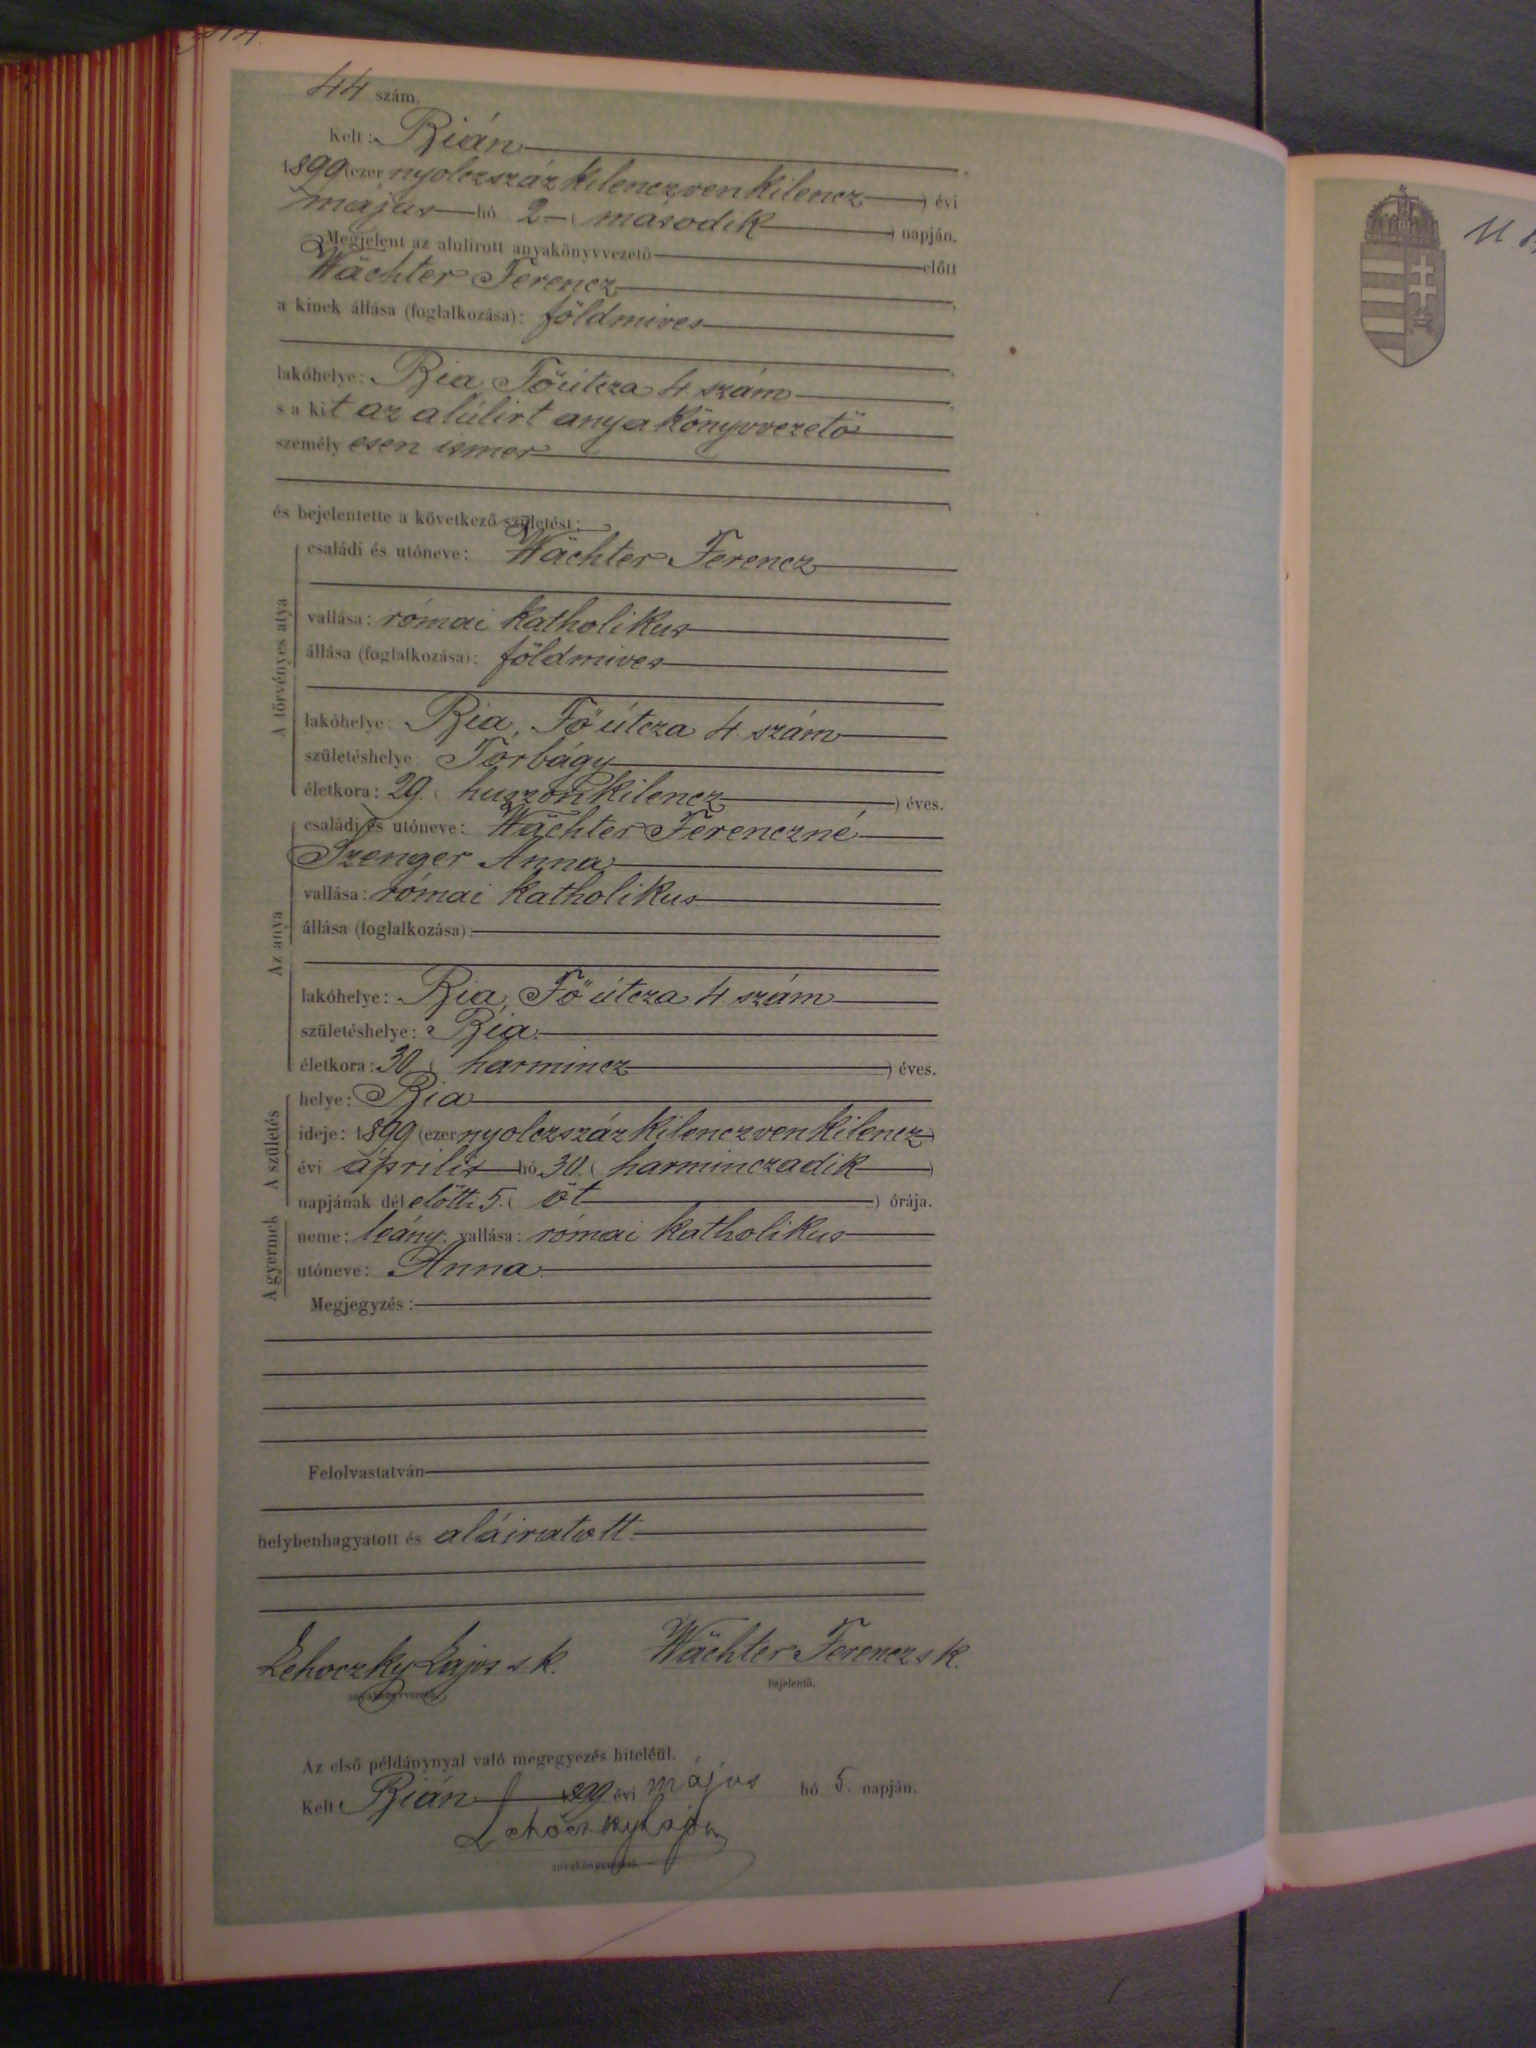 44 szám.
Kelt: Bián
1899 (ezer nyolczszázkilenczvenkilencz) évi
május hó 2 (második) napján.
Megjelent az alulirott anyakönyvvezető előtt
Wächter Ferencz
a kinek állása (foglalkozása): földmives
lakóhelye: Bia, Főútcza 4 szám
s a kit az alúlirt anyakönyvvezető
személyesen ismer
és bejelentette a következő születést:
A törvényes atya
családi és utóneve: Wächter Ferencz
vallása: római katholikus
állása (foglalkozása): földmives
lakóhelye: Bia, Fő útcza 4. szám
születéshelye: Torbágy
életkora: 29. (huszonkilencz) éves.
Az anya
családi és utóneve: Wächter Ferenczné
Szenger Anna
vallása: római katholikus
állása (foglalkozása):
lakóhelye: Bia, Fő útcza 4 szám
születéshelye: Bia.
életkora: 30 (harmincz) éves.
A születés
helye: Bia
ideje: 1899 (ezer nyolczszázkilenczvenkilencz)
évi április hó 30. (harminczadik)
napjának dél előtti 5. (öt) órája.
A gyermek
neme: leány. vallása: római katholikus
utóneve: Anna.
Megjegyzés:
Felolvastatván
helybenhagyatott és aláiratott.
Lehoczky Lajos s. k. Wächter Ferencz s k.
anyakönyvvezető. bejelentő.
Az első példánynyal való megegyezés hiteléül.
Kelt Bián 1899 évi május hó 5. napján.
Lehoczky Lajos
anyakönyvvezető.